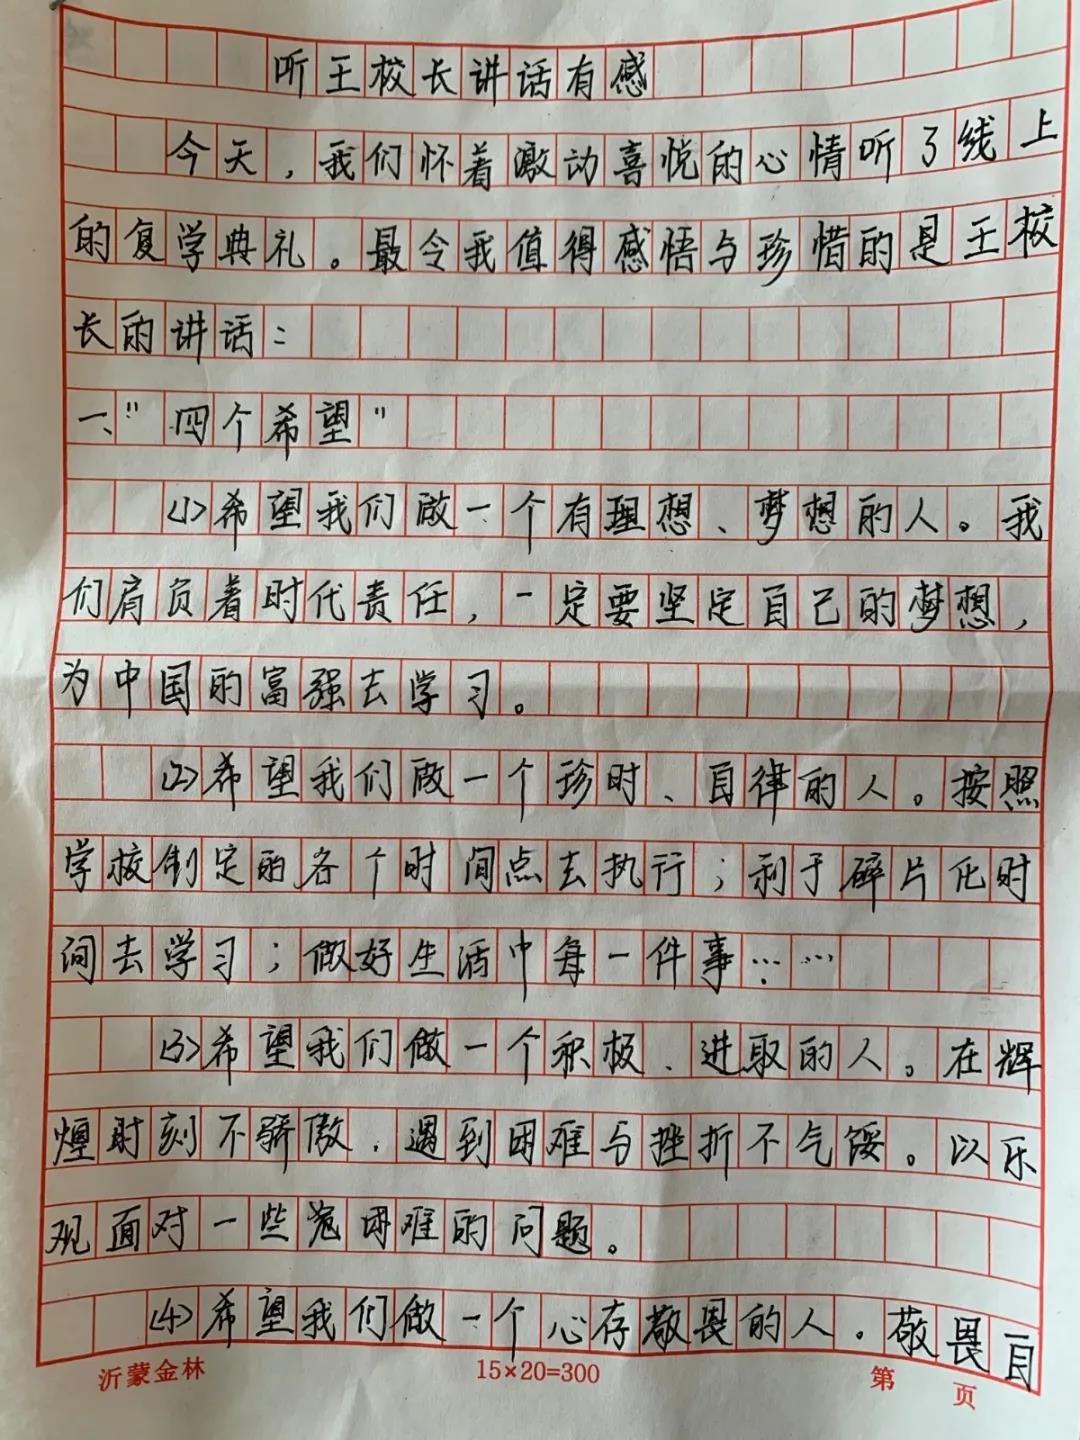 听王校长讲话有感
今天，我们怀着激动喜悦的心情听了线上
的复学典礼。最令我值得感悟与珍惜的是王校
长的讲话：
一、"四个希望"
(1)希望我们做一个有理想、梦想的人。我
们肩负着时代责任，一定要坚定自己的梦想，
为中国的富强去学习。
(2)希望我们做一个珍时、自律的人。按照
学校制定的各个时间点去执行；利于碎片化时
间去学习；做好生活中每一件事……
(3)希望我们做一个积极、进取的人。在辉
煌时刻不骄傲，遇到困难与挫折不气馁。以乐
观面对一些困难的问题。
(4)希望我们做一个心存敬畏的人。敬畏自
沂蒙金林 15×20=300 第 页